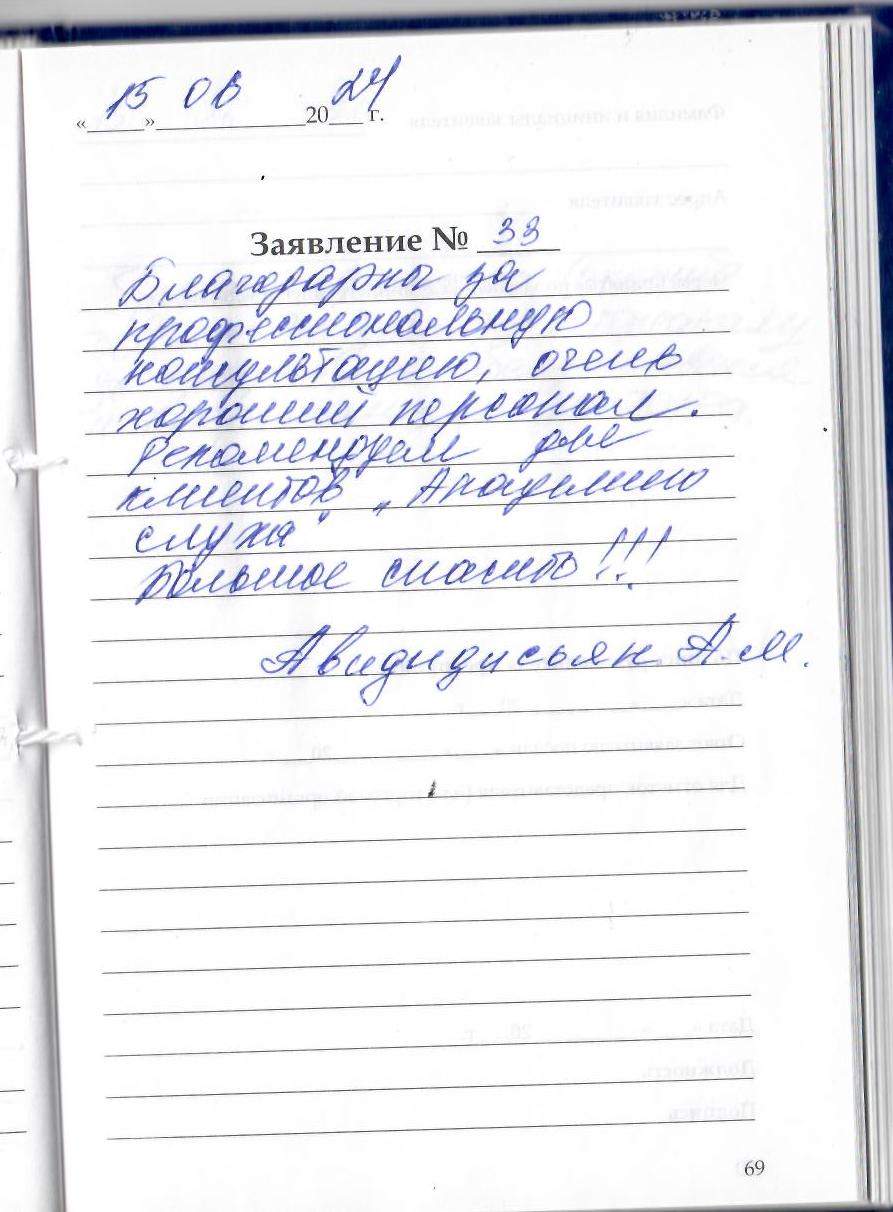 « 15 » 08 20 24 г.
Заявление № 33
Благодарны за
профессиональную
консультацию, очень
хороший персонал.
Рекомендуем для
клиентов „Академию
слуха"
Большое спасибо!!!
Авидидисьян А.М.
69